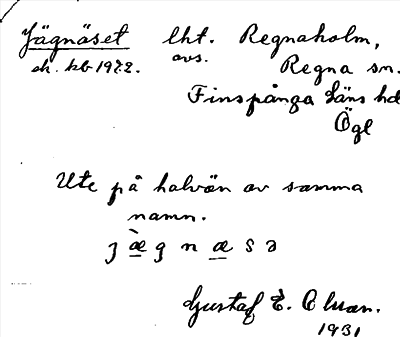 Jägnäset lht. Regnaholm,
sk. kb 1922. avs. Regna sn.
Finspånga läns hd
Ögl
Ute på halvön av samma
namn.
j æ̀ g n æ s ə
Gustaf E.
1931